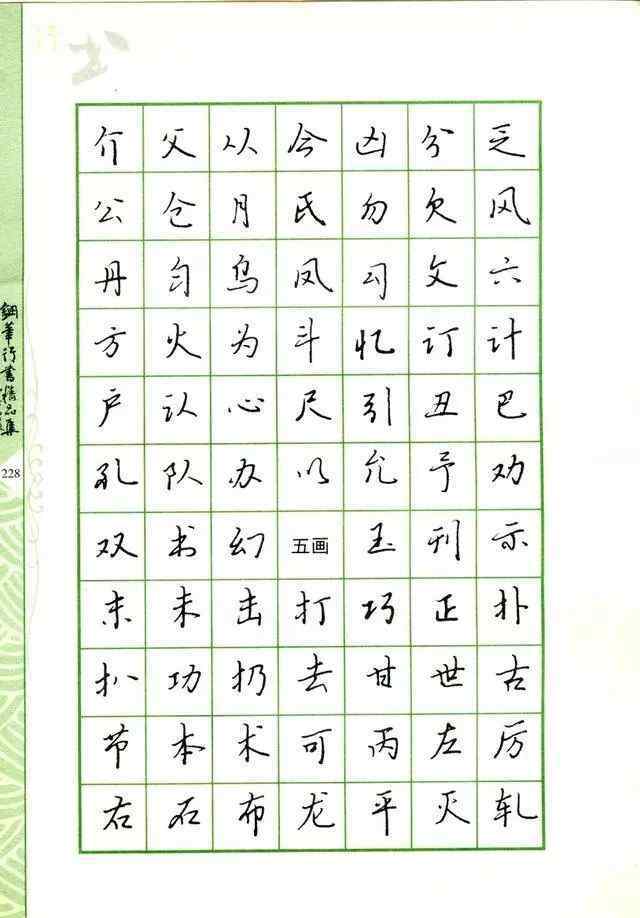 行书
介父从今凶分乏
公仓月氏勿欠风
丹匀乌凤勾文六
方火为斗忆订计
户认心尺引丑巴
孔队办以允予劝
双书幻五画玉刊示
末未击打巧正扑
扒功扔去甘世古
节本术可丙左厉
右石布龙平灭轧
鋼筆行書精品集
228